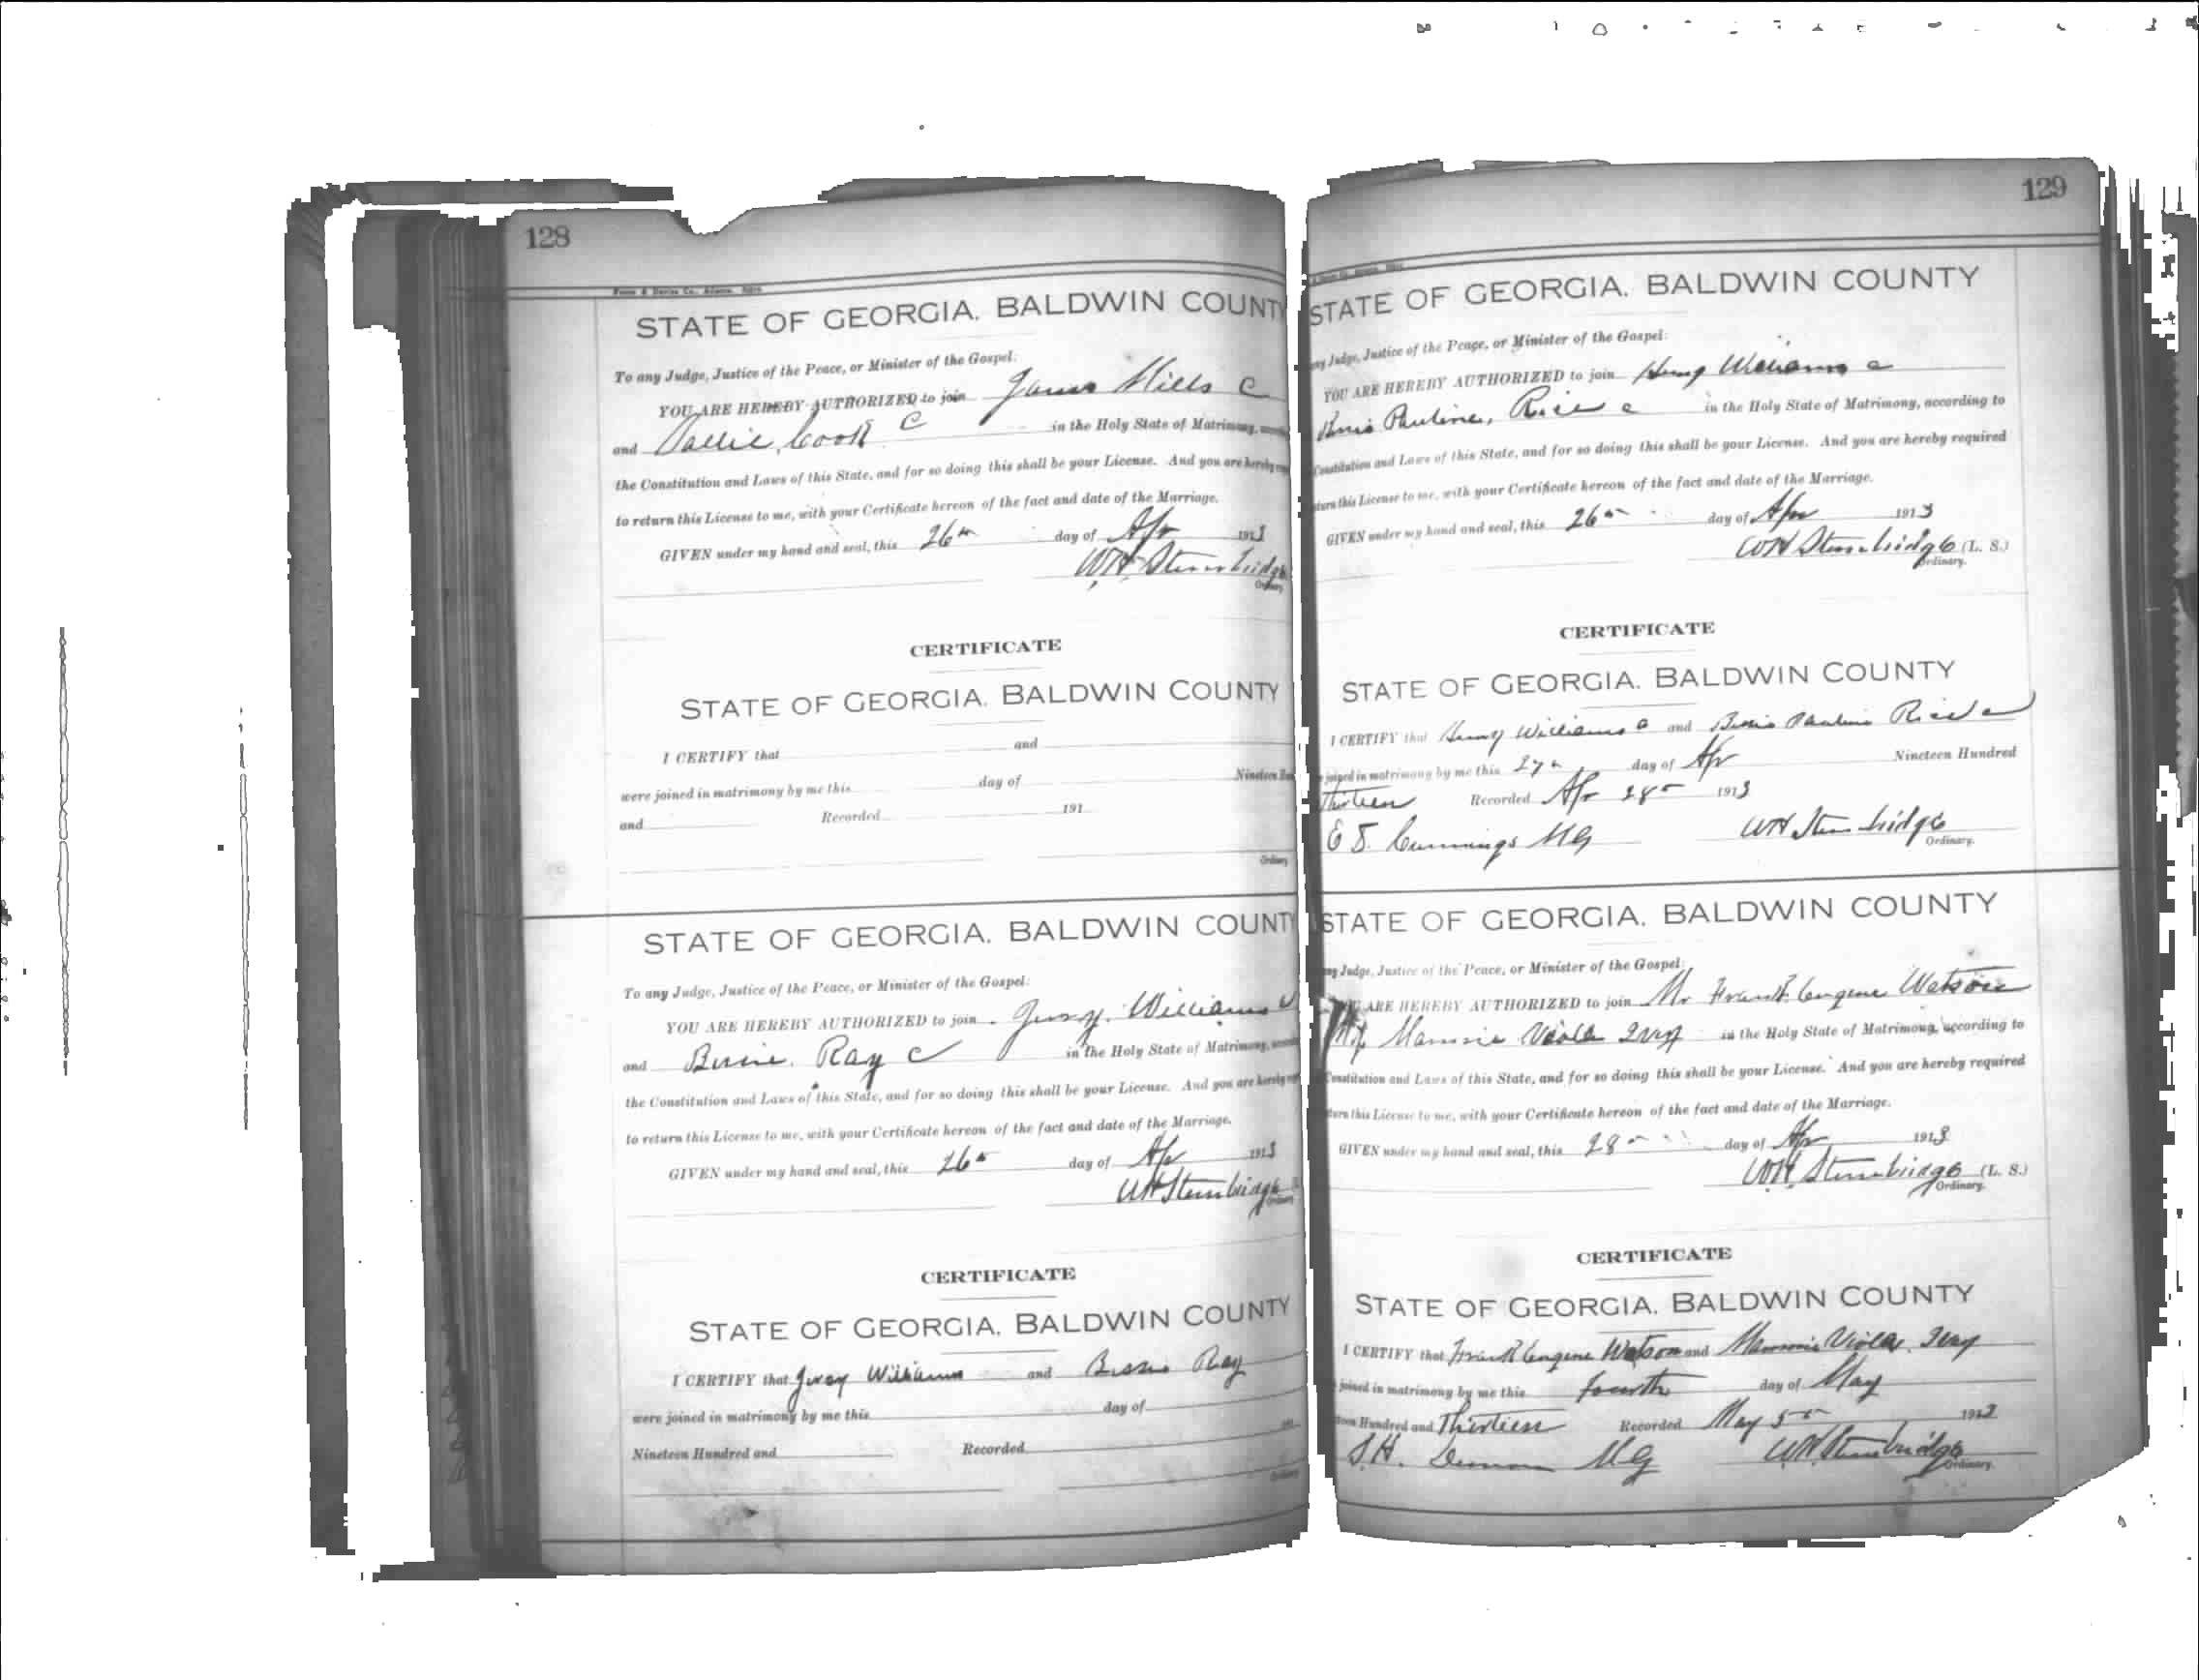 128
STATE OF GEORGIA. BALDWIN COUNT
To any Judge, Justice of the Peace, or Minister of the Gospel:
YOU ARE HEREBY AUTHORIZED to join James Mills C
and Cook C in the Holy State of Matrimony,
the Constitution and Laws of this State, and for so doing this shall be your License. And you are hereby
to return this License to me, with your Certificate hereon of the fact and date of the Marriage.
GIVEN under my hand and seal, this 26th day of Apr 1913
WH Stembridge
Ordinary
CERTIFICATE
STATE OF GEORGIA. BALDWIN COUNTY
I CERTIFY that and
were joined in matrimony by me this day of Nineteen
and Recorded 191
Ordinary
STATE OF GEORGIA. BALDWIN COUNT
To any Judge, Justice of the Peace, or Minister of the Gospel:
YOU ARE HEREBY AUTHORIZED to join Williams
and Ray C in the Holy State of Matrimony,
the Constitution and Laws of this State, and for so doing this shall be your License. And you are hereby
to return this License to me, with your Certificate hereon of the fact and date of the Marriage.
GIVEN under my hand and seal, this 26 day of Apr 1913
WH Stembridge
Ordinary
CERTIFICATE
STATE OF GEORGIA. BALDWIN COUNTY
I CERTIFY that Williams and Bessie Ray
were joined in matrimony by me this day of
Nineteen Hundred and Recorded 191
Ordinary
129
STATE OF GEORGIA. BALDWIN COUNTY
ny Judge, Justice of the Peace, or Minister of the Gospel:
YOU ARE HEREBY AUTHORIZED to join Henry Williams c
Pauline, Rice c in the Holy State of Matrimony, according to
Constitution and Laws of this State, and for so doing this shall be your License. And you are hereby required
turn this License to me, with your Certificate hereon of the fact and date of the Marriage.
GIVEN under my hand and seal, this 26 day of Apr 1913
WH Stembridge (L. S.)
Ordinary.
CERTIFICATE
STATE OF GEORGIA. BALDWIN COUNTY
I CERTIFY that Henry Williams c and Pauline Rice c
joined in matrimony by me this 27 day of Apr Nineteen Hundred
Thirteen Recorded Apr 28 1913
E Cummings MG WH Stembridge
Ordinary.
STATE OF GEORGIA. BALDWIN COUNTY
ny Judge, Justice of the Peace, or Minister of the Gospel:
ARE HEREBY AUTHORIZED to join Mr Frank Eugene Watson
Mammie Viola Ivey in the Holy State of Matrimony, according to
Constitution and Laws of this State, and for so doing this shall be your License. And you are hereby required
turn this License to me, with your Certificate hereon of the fact and date of the Marriage.
GIVEN under my hand and seal, this 28 day of Apr 1913
WH Stembridge (L. S.)
Ordinary.
CERTIFICATE
STATE OF GEORGIA. BALDWIN COUNTY
I CERTIFY that Frank Eugene Watson and Mammie Viola Ivey
joined in matrimony by me this fourth day of May
Hundred and Thirteen Recorded May 5 1913
MG WH Stembridge
Ordinary.